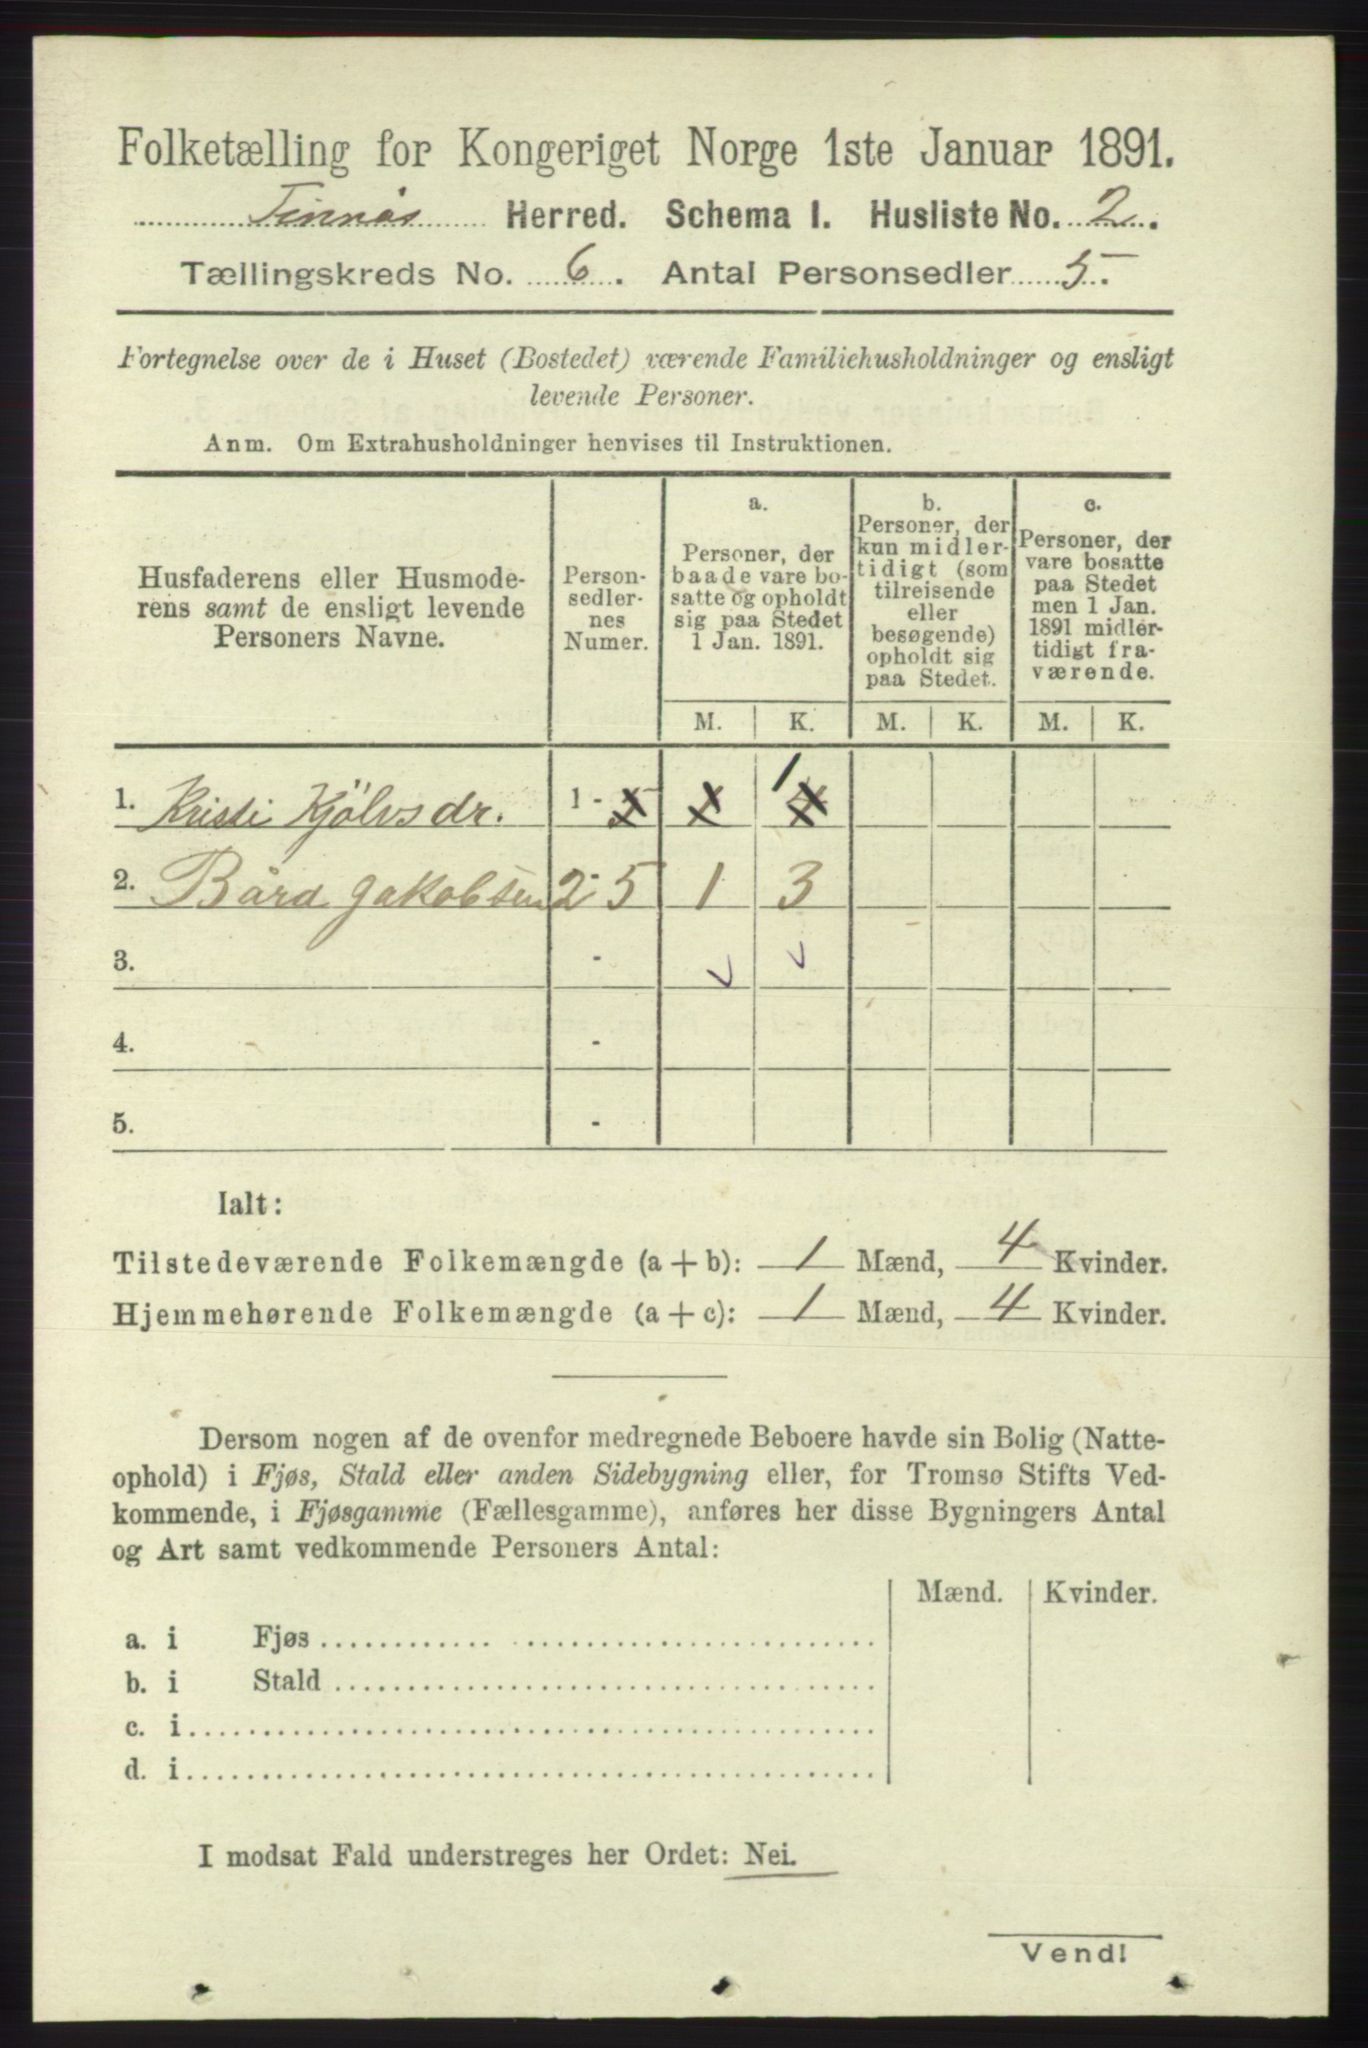 Folketælling for Kongeriget Norge 1ste Januar 1891.
Finnås Herred. Schema I. Husliste No. 2.
Tællingskreds No. 6. Antal Personsedler 5.
Fortegnelse over de i Huset (Bostedet) værende Familiehusholdninger og ensligt
levende Personer.
Anm. Om Extrahusholdninger henvises til Instruktionen.
Husfaderens eller Husmode-
rens samt de ensligt levende
Personers Navne.
Person-
sedler-
nes
Numer.
a.
Personer, der
baade vare bo-
satte og opholdt
sig paa Stedet
1 Jan. 1891.
b.
Personer, der
kun midler-
tidigt (som
tilreisende
eller
besøgende)
opholdt sig
paa Stedet.
c.
Personer, der
vare bosatte
paa Stedet
men 1 Jan.
1891 midler-
tidigt fra-
værende.
M. K. M. K. M. K.
1. Kristi Kjölvsdr. 1 - 1
2. Bård Jakobsen 2 - 5 1 3
3. -
4. -
5. -
Ialt:
Tilstedeværende Folkemængde (a + b): 1 Mænd, 4 Kvinder.
Hjemmehørende Folkemængde (a + c): 1 Mænd, 4 Kvinder.
Dersom nogen af de ovenfor medregnede Beboere havde sin Bolig (Natte-
ophold) i Fjøs, Stald eller anden Sidebygning eller, for Tromsø Stifts Ved-
kommende, i Fjøsgamme (Fællesgamme), anføres her disse Bygningers Antal
og Art samt vedkommende Personers Antal:
Mænd. Kvinder.
a. i Fjøs
b. i Stald
c. i
d. i
I modsat Fald understreges her Ordet: Nei.
Vend!